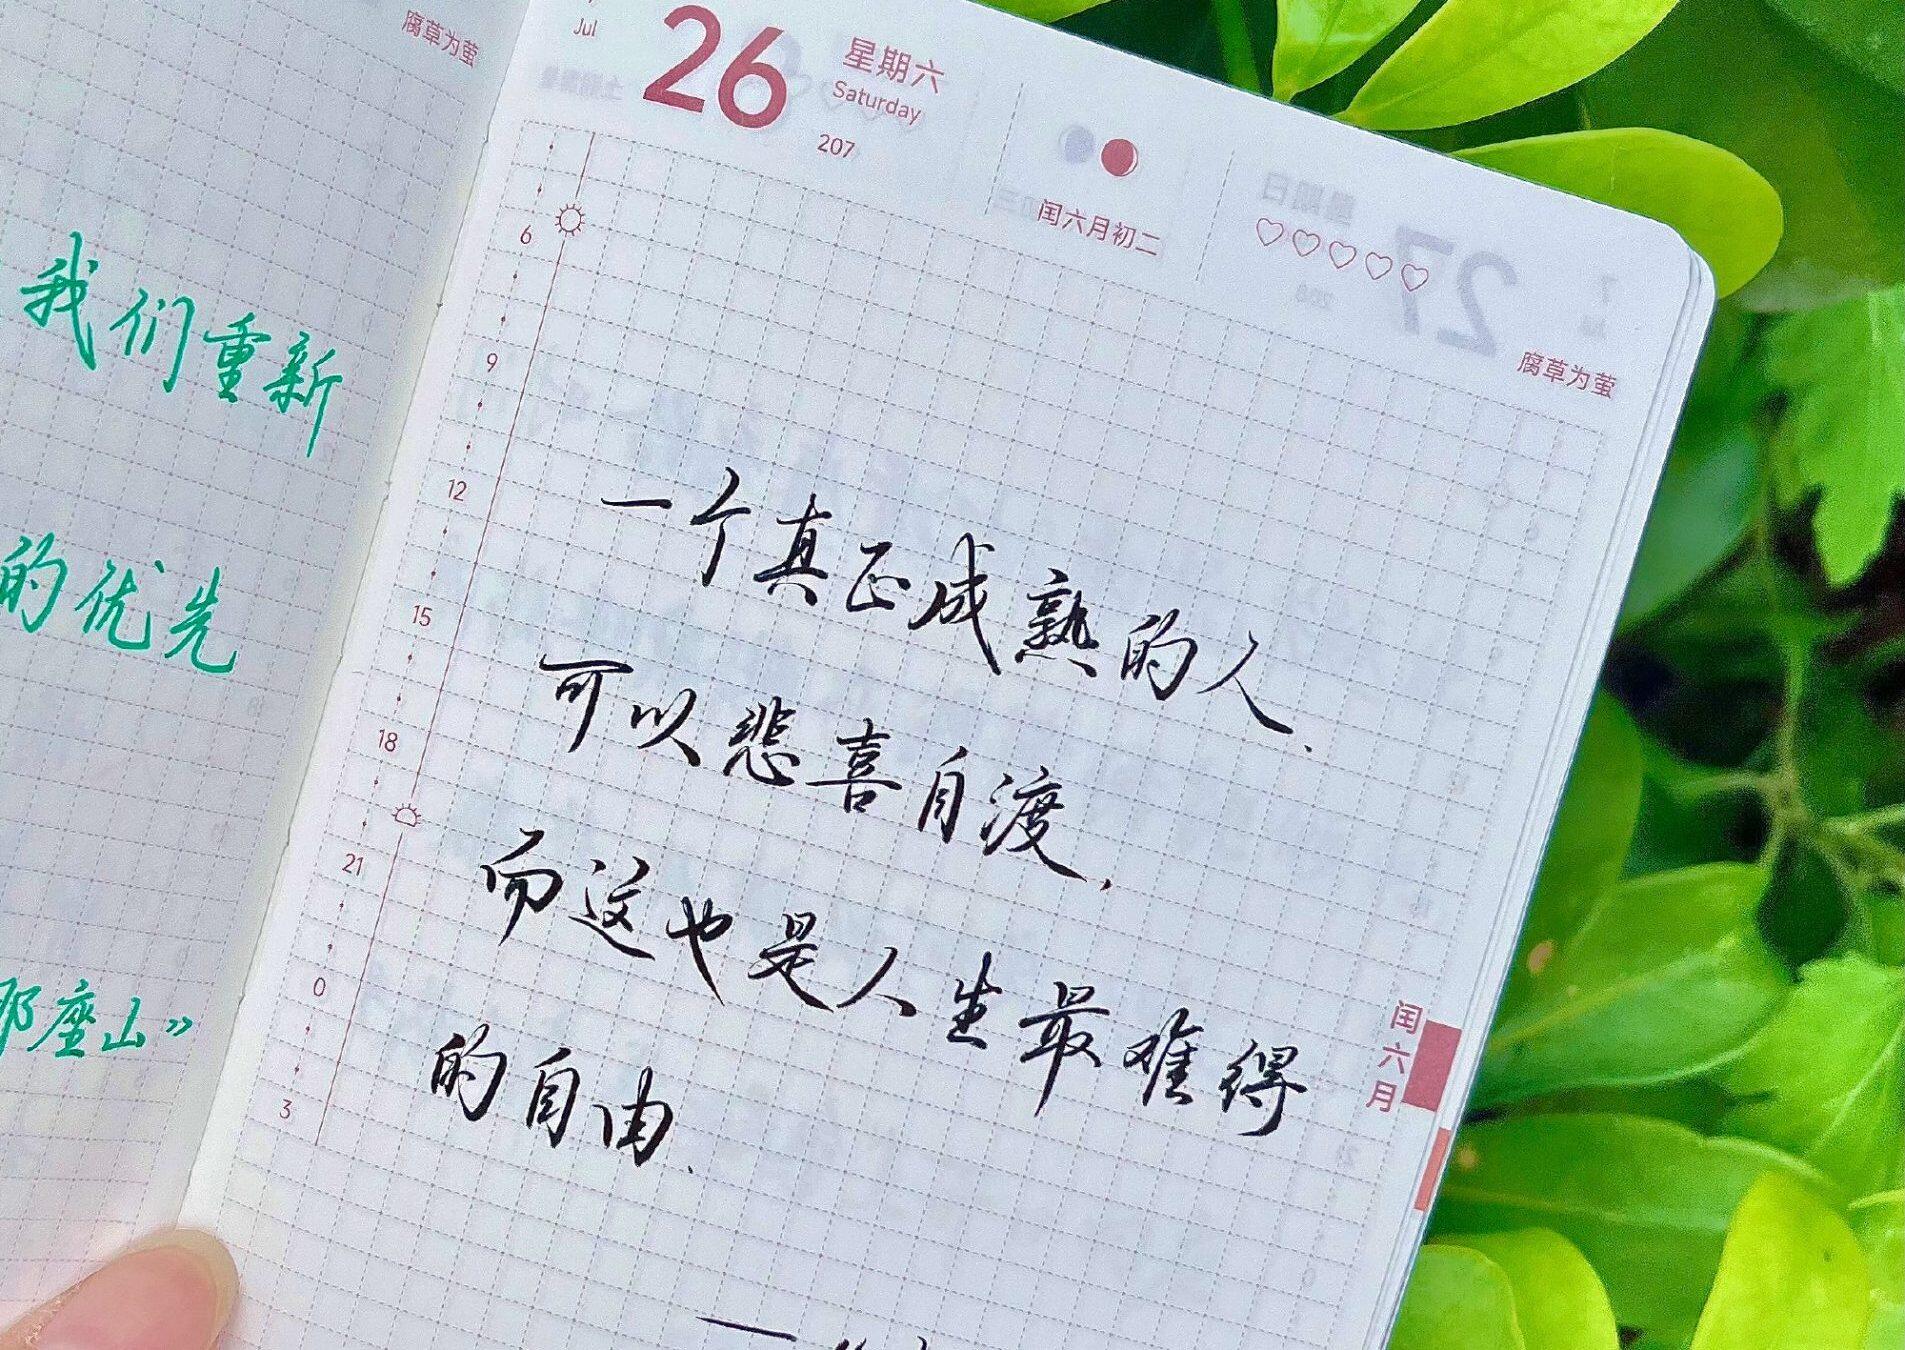 腐草为萤
我们重新
的优先
那座山》
Jul
26
星期六
Saturday
207
闰六月初二
腐草为萤
6
9
12
15
18
21
0
3
一个真正成熟的人、
可以悲喜自渡，
而这也是人生最难得
的自由、
闰六月